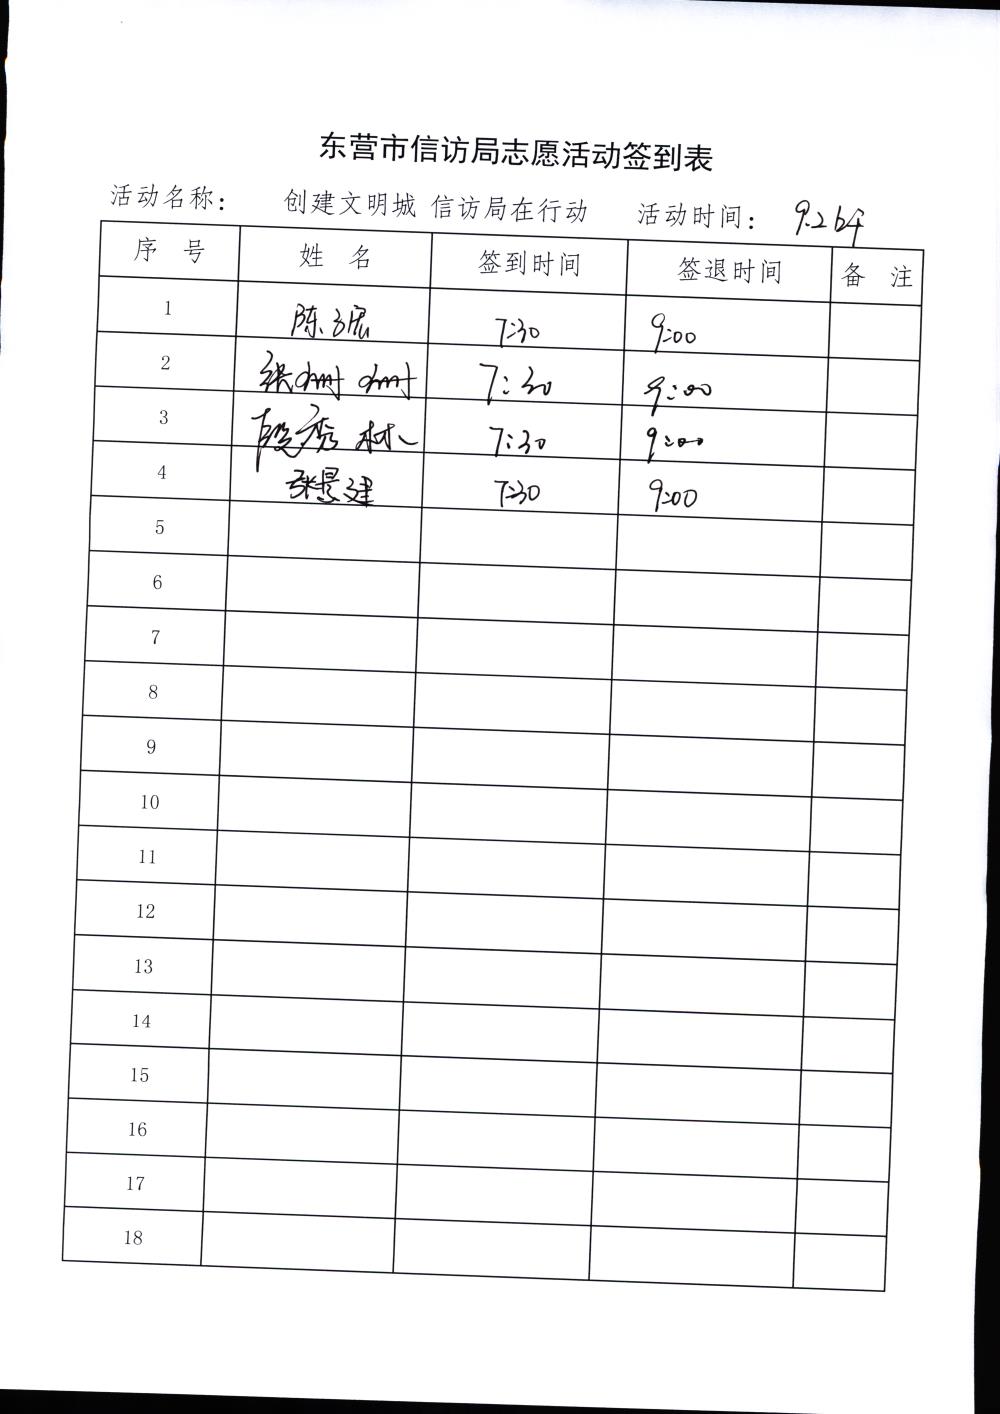 东营市信访局志愿活动签到表
活动名称: 创建文明城 信访局在行动 活动时间: 9.26
序 号 姓 名 签到时间 签退时间 备 注
1 陈 7:30 9:00
2 张 7:30 9:00
3 段秀林 7:30 9:00
4 张景建 7:30 9:00
5
6
7
8
9
10
11
12
13
14
15
16
17
18